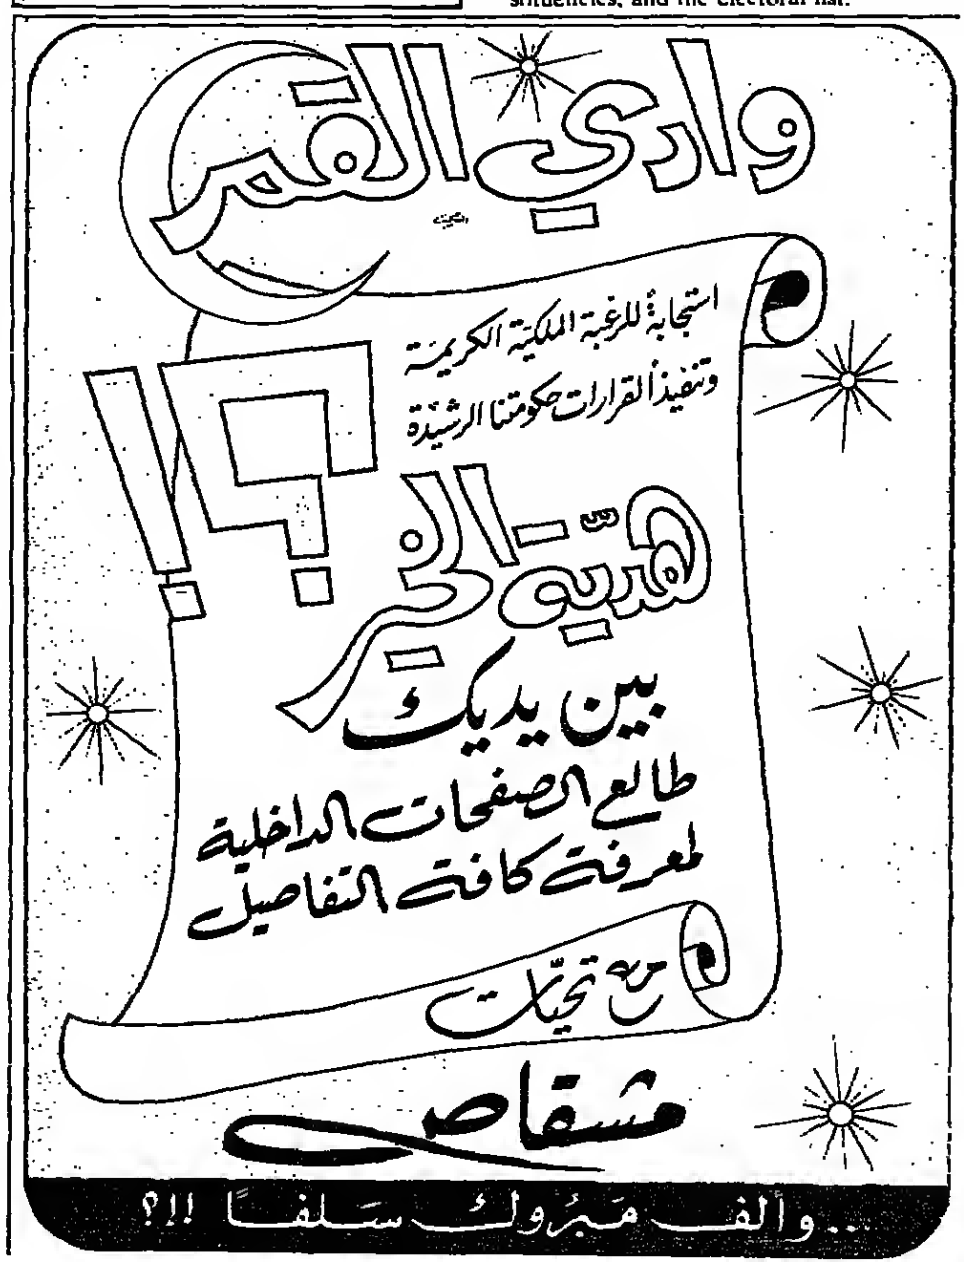 stituencies, and the electoral list.
وادي القمر
استجابةً للرغبة الملكية الكريمة
وتنفيذاً لقرارات حكومتنا الرشيدة
هديّة الخير ؟!
بين يديك
طالع الصفحات الداخلية
لمعرفة كافة التفاصيل
مع تحيّات
مشقاص
...وألف مَبرُوك سَلفاً !!؟